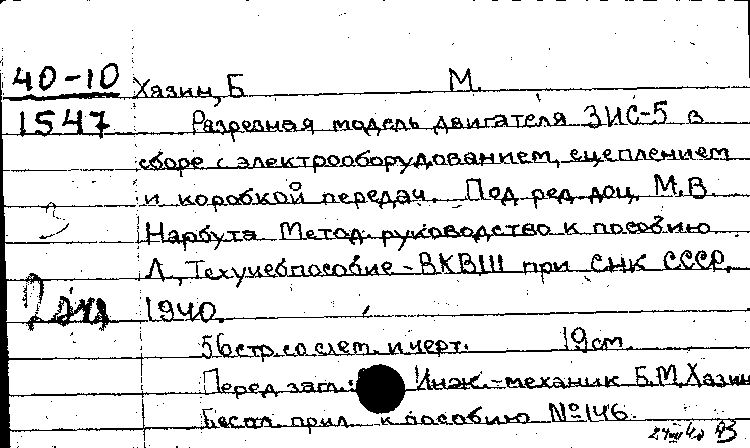 40-10 Хазин, Б М.
1547 Разрезная модель двигателя ЗИС-5 в
сборе с электрооборудованием, сцеплением
и коробкой передач. Под ред. доц. М.В.
Нарбута Метод. руководство к пособию
Л., Техучебпособие - ВКВШ при СНК СССР,
2 экз 1940.
56 стр. со схем. и черт. 19 см.
Перед загл.: Инж.-механик Б.М. Хазин
Беспл. прил. к пособию № 146.